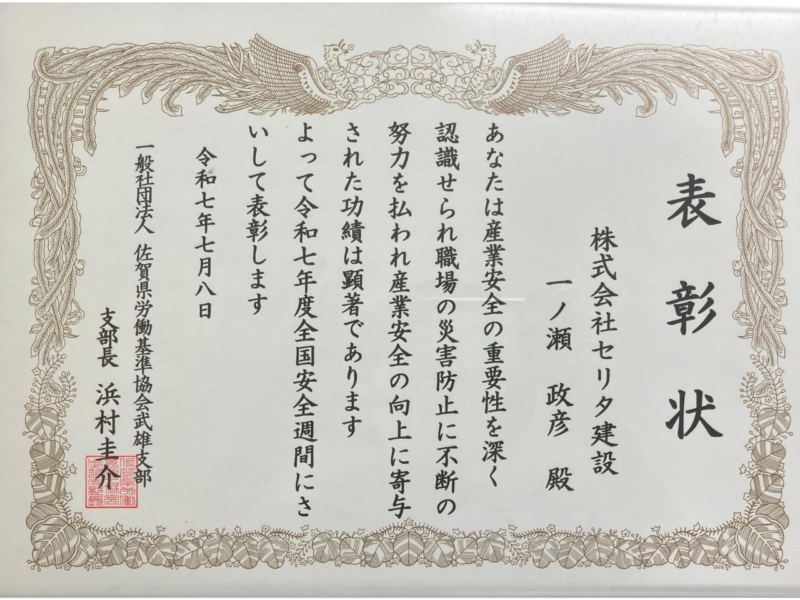 表彰状
株式会社セリタ建設
一ノ瀬 政彦 殿
あなたは産業安全の重要性を深く
認識せられ職場の災害防止に不断の
努力を払われ産業安全の向上に寄与
された功績は顕著であります
よって令和七年度全国安全週間にさ
いして表彰します
令和七年七月八日
一般社団法人 佐賀県労働基準協会武雄支部
支部長 浜村圭介